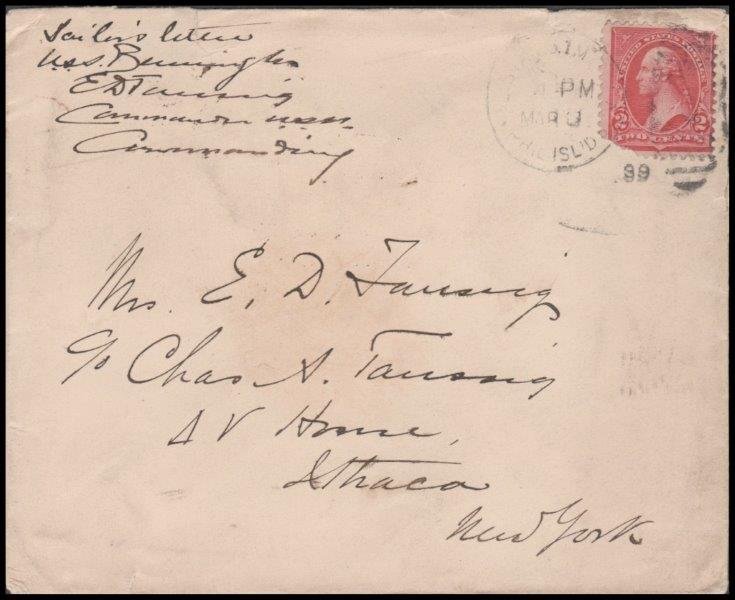 Sailor's letter
U.S.S. Bennington
E D Taussig
Commander U.S.N.
Commanding
P.M
PM
MAR
PHIL ISL'D
99
UNITED STATES POSTAGE
2 2
TWO CENTS
Mrs. E. D. Taussig
c/o Chas A. Taussig
Δ V House,
Ithaca
New York